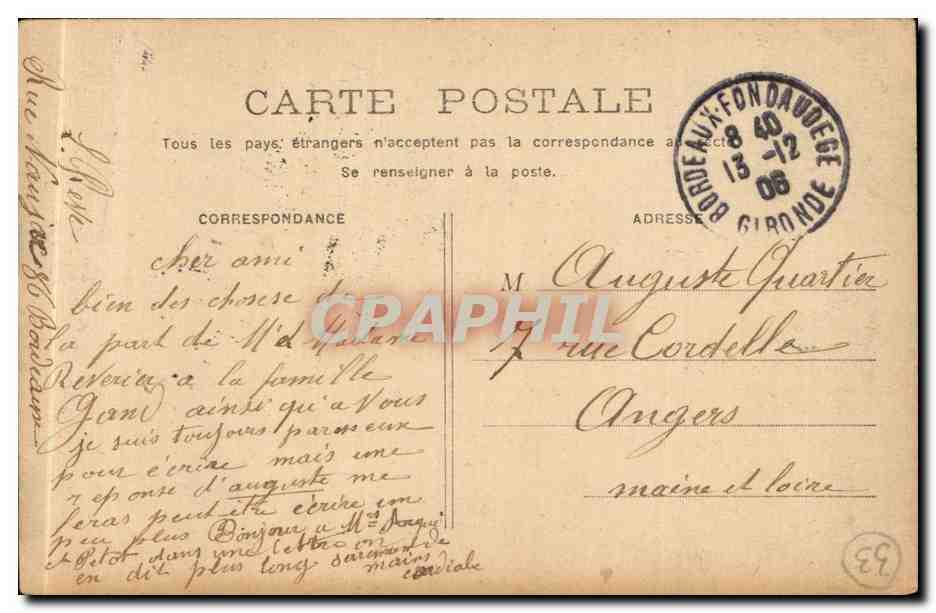 CARTE POSTALE
Tous les pays étrangers n'acceptent pas la correspondance au recto
Se renseigner à la poste.
BORDEAUX-FONDAUDEGE
8 40
13 -12
06
GIRONDE
CORRESPONDANCE
cher ami
bien des choses de
la part de Mr et Madame
Reverier a la famille
Gand ainsi qu'a Vous
je suis toujours paresseux
pour écrire mais une
reponse d'auguste me
feras peut être écrire un
peu plus Bonjour a Mrs
et Petot dans une lettre on
en dit plus long serrement de
mains
cordiale
Rue 86 Bordeaux
ADRESSE
M Auguste Quartier
7 rue Cordelle
Angers
maine et loire
CPAPHIL
33